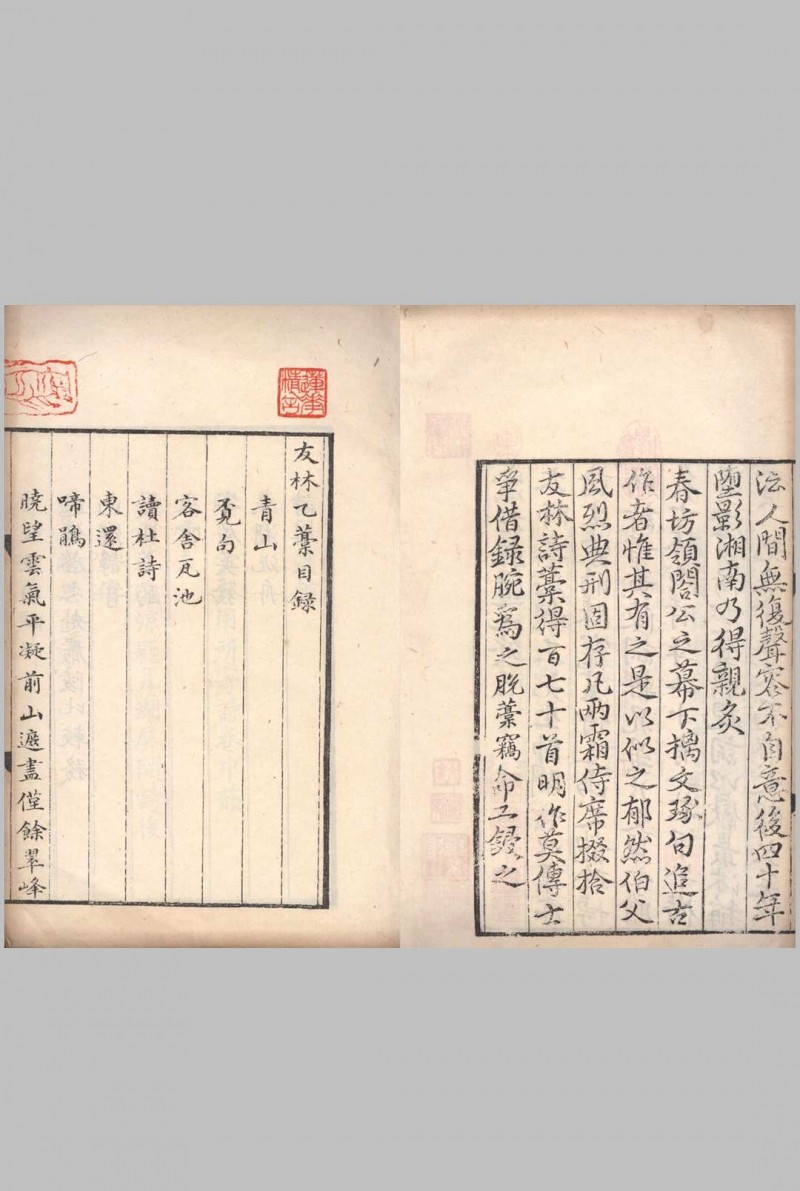 法人間無復聲容不自意後四十年
墮影湘南乃得親炙
春坊領閤公之幕下摛文琢句追古
作者惟其有之是以似之郁然伯父
風烈典刑固存凡兩霜侍席掇拾
友林詩藁得百七十首明作莫傳士
爭借錄腕為之脫藁竊命工鋟之
友林乙藁目録
青山
覓句
客舍瓦池
讀杜詩
東還
啼鵑
曉望雲氣平凝前山遮盡僅餘翠峰